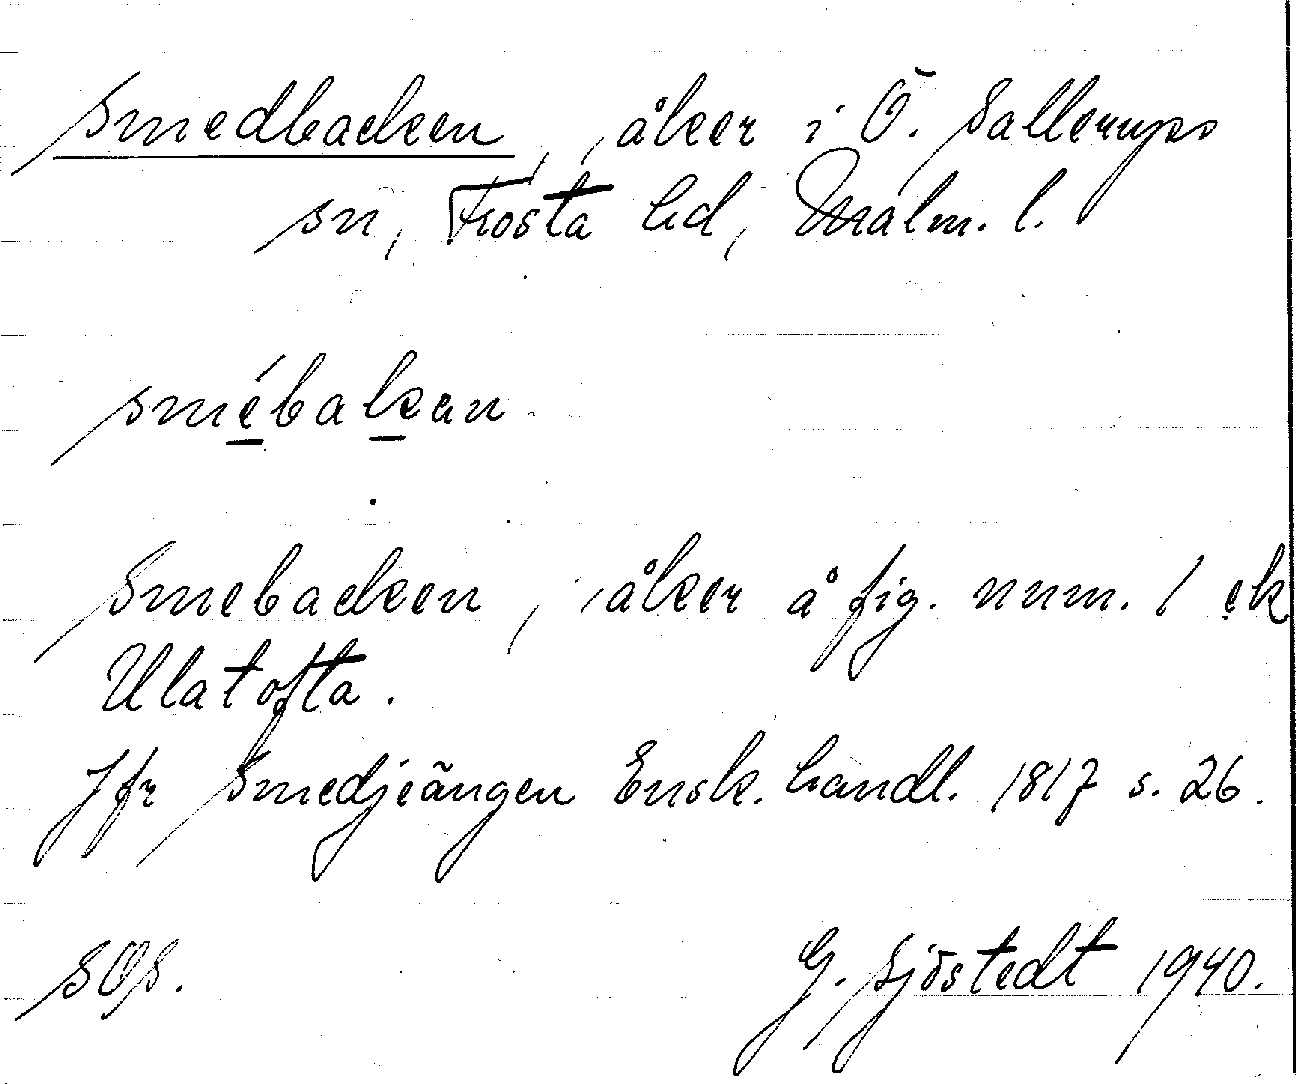 Smedbacken, åker i Ö. Sallerups
sn, Frosta hd, Malm. l.
smébakan
Smebacken, åker å fig. num. 1 ek
Ulatofta.
Jfr Smedjeängen Ensk. handl. 1817 s. 26.
SOS.
G. Sjöstedt 1940.